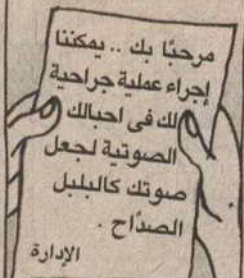 مرحبًا بك .. يمكننا
إجراء عملية جراحية
لك فى احبالك
الصوتية لجعل
صوتك كالبلبل
الصدّاح .
الإدارة